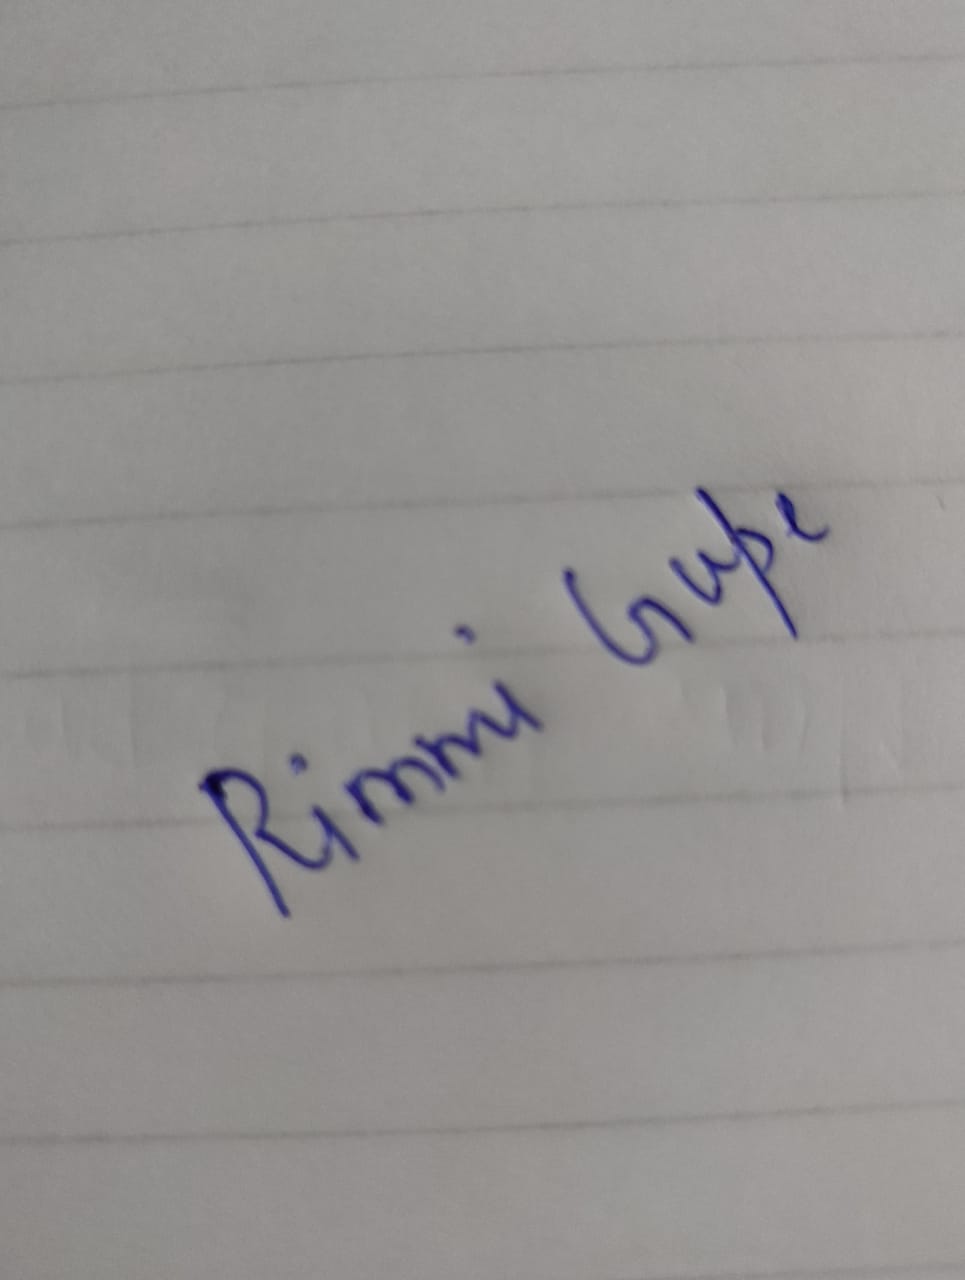 Rimmi Gupe